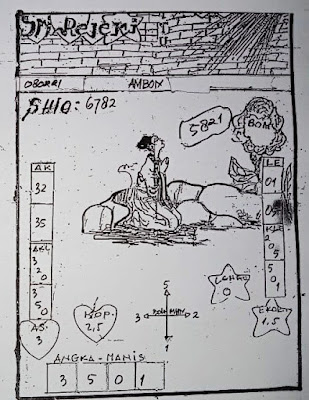 Sri Rejeki
OBORRI AMBON
SHIO: 6782
5821
BOM
AK
32
35
AKL
3
2
0
3
5
0
AS.
3
KOP.
2,5
5
3
2
1
0
LE
01
05
KL
2
0
5
5
0
1
EKOR
1,5
ANGKA-MANIS
3 5 0 1